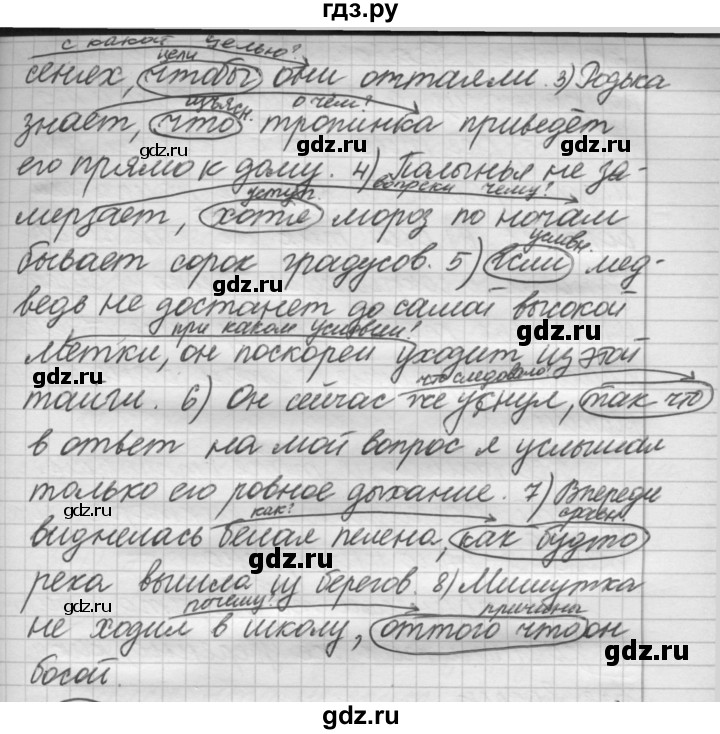 гдз.ру
с какой целью?
цели
сенях, чтобы они оттаяли. 3) Родька
изъясн. о чём?
знает, что тропинка приведёт
gdz.ru gdz.ru
его прямо к дому. 4) Полынья не за-
уступ. вопреки чему?
мерзает, хотя мороз по ночам
условн.
бывает сорок градусов. 5) Если мед-
gdz.ru gdz.ru
ведь не достанет до самой высокой
при каком условии?
метки, он поскорей уходит из этой
gdz.ru gdz.ru
что следовало?
тайги. 6) Он сейчас же уснул, так что
в ответ на мой вопрос я услышал
только его ровное дыхание. 7) Впереди
gdz.ru gdz.ru
как? сравн.
виднелась белая пелена, как будто
gdz.ru
река вышла из берегов. 8) Мишутка
gdz.ru gdz.ru
почему? причины
не ходил в школу, оттого что он
gdz.ru
босой.
gdz.ru gdz.ru
gdz.ru